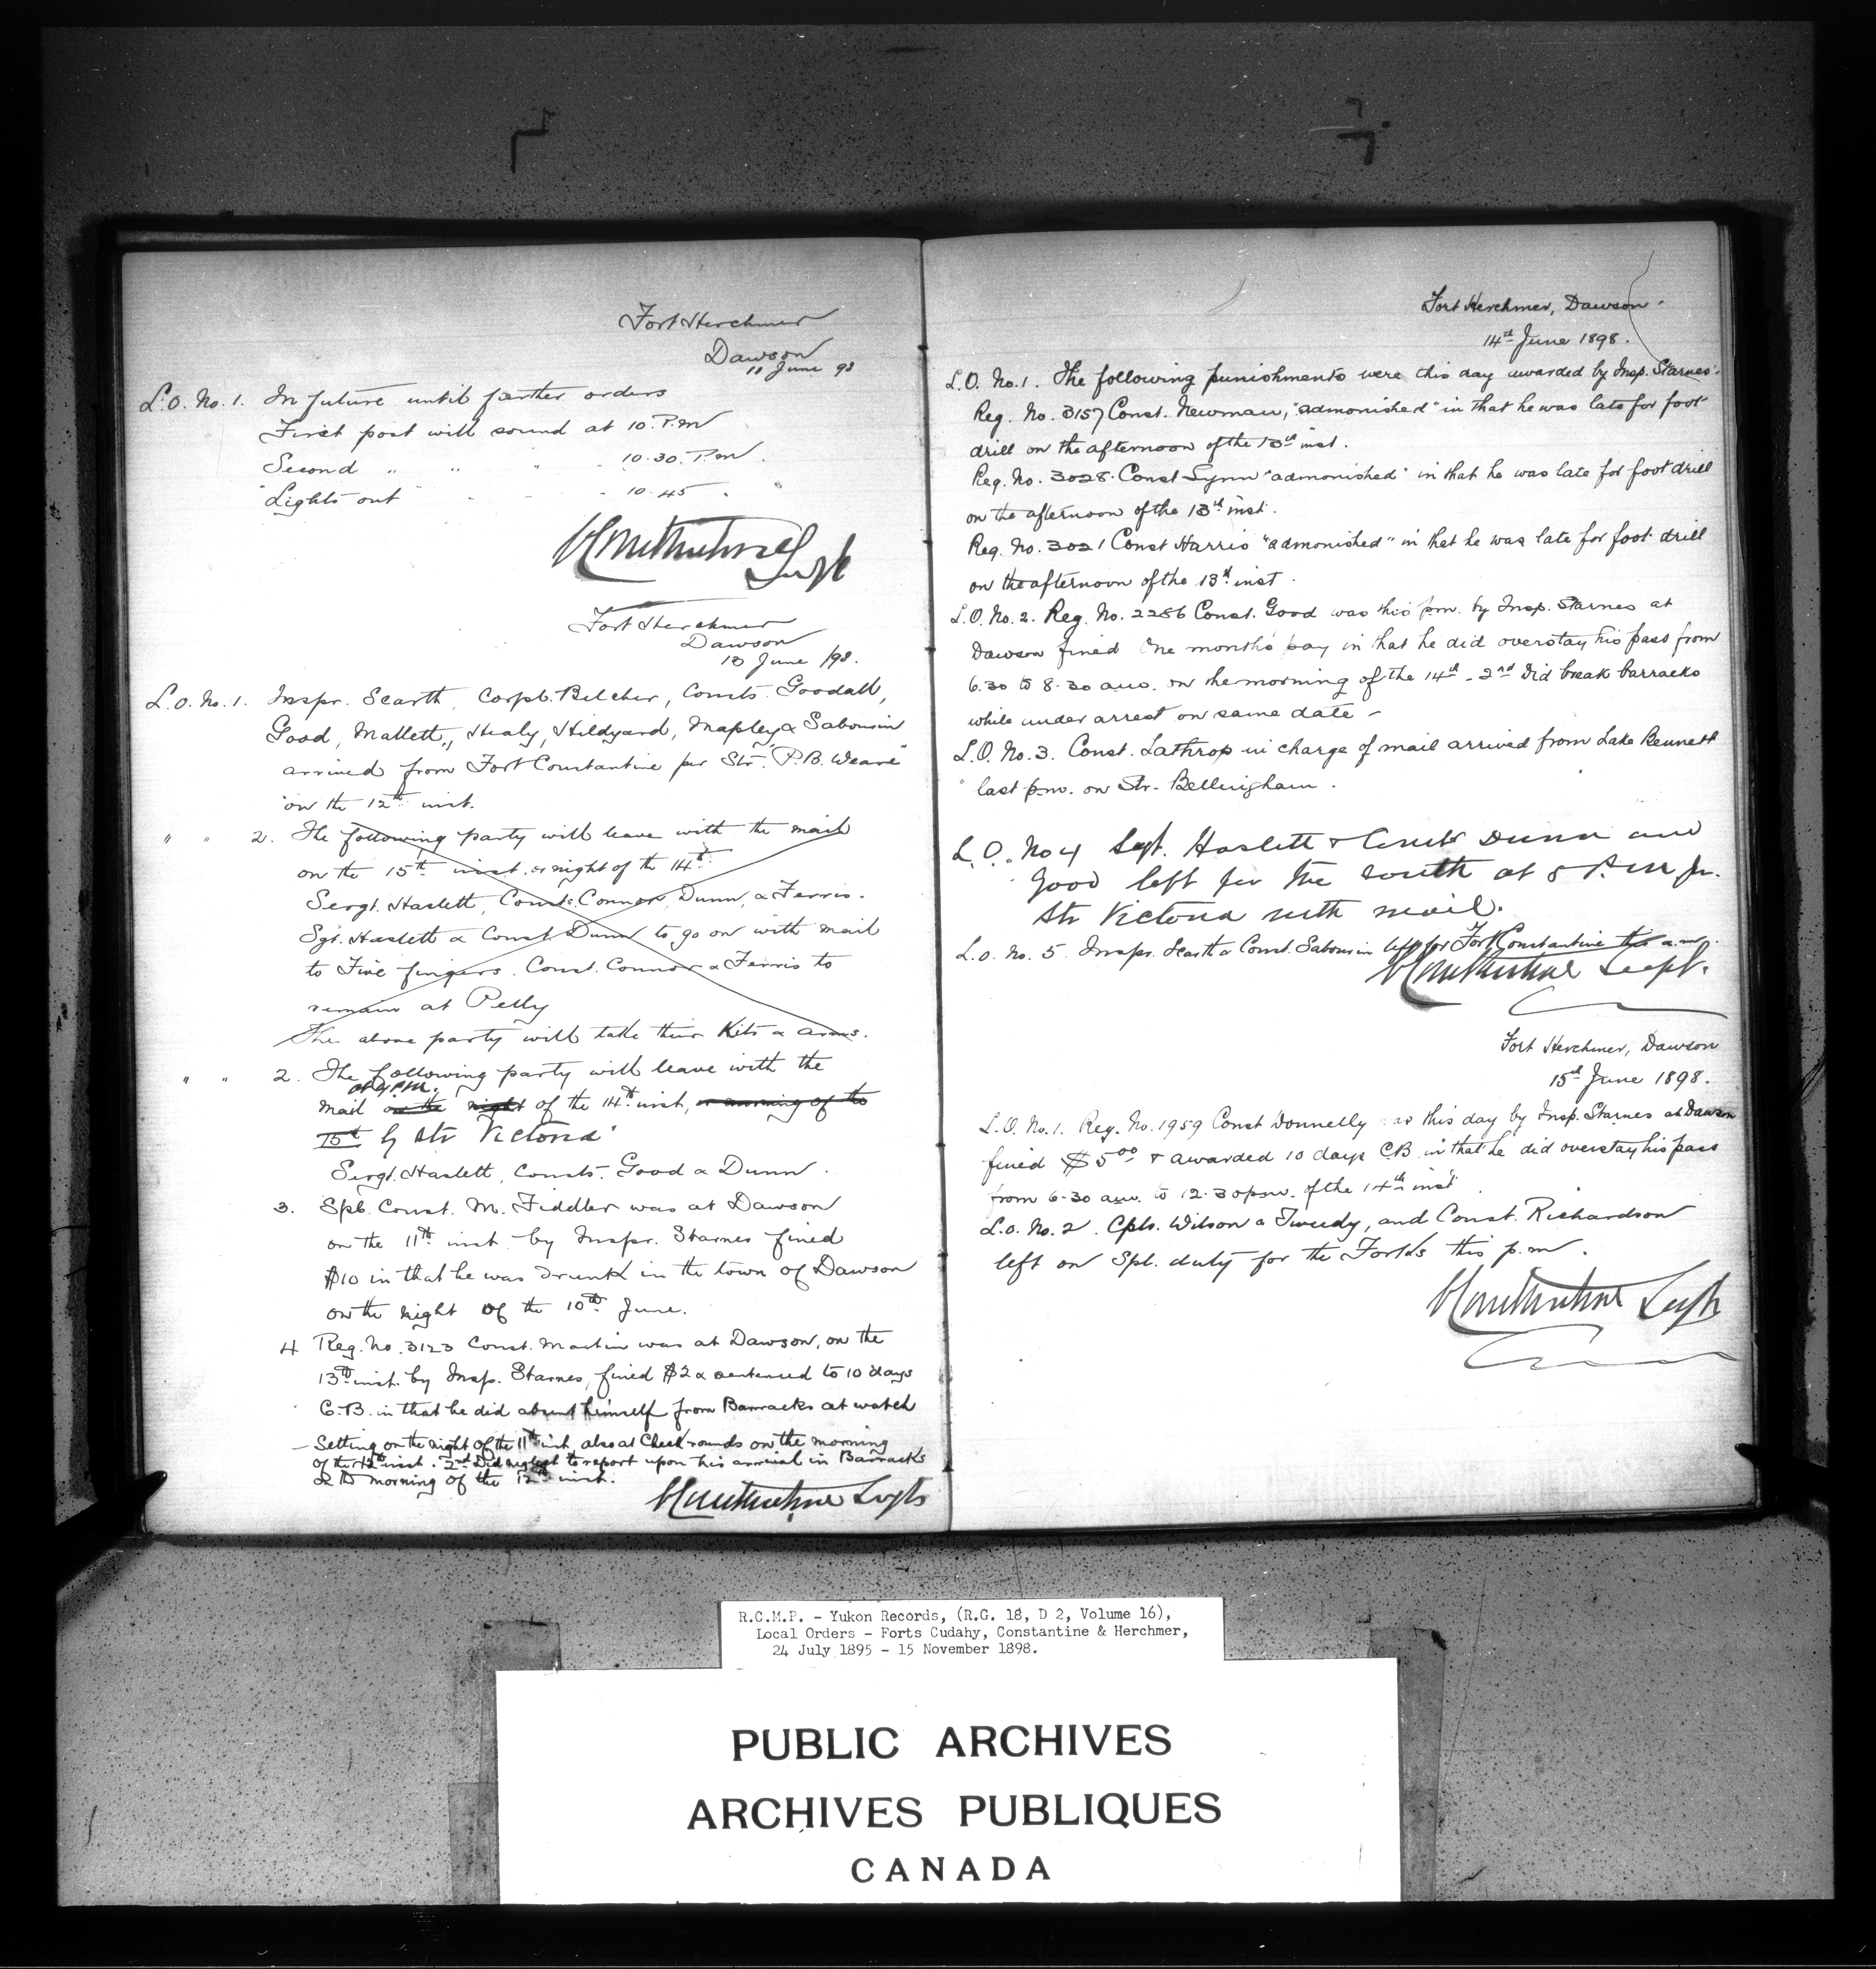 Fort Herchmer
Dawson
11 June 98
L.O. No. 1. In future until further orders
First post will sound at 10. P.m
Second " " " " 10.30. P.m.
Lights out " " " 10.45 " "
C Constantine Supt
Fort Herchmer
Dawson
13 June /98.
L.O. No. 1. Inspr. Scarth, Corpl. Belcher, Consts. Goodall,
Good, Mallett, Healy, Hildyard, Mapley & Sabourin
arrived from Fort Constantine per Str. "P.B. Weare"
on the 12th inst.
" " 2. The following party will leave with the mail
on the 15th inst. or night of the 14th.
Sergt. Haslett, Consts. Connor, Dunn, & Ferris.
Sgt. Haslett & Const. Dunn to go on with mail
to Five fingers. Const. Connor & Ferris to
remain at Pelly
The above party will take their Kits & arms.
" " 2. The following party will leave with the
at 4 P.M.
mail on the night of the 14th inst, or morning of the
15th by Str Victoria
Sergt. Haslett, Consts. Good & Dunn.
3. Spl. Const. M. Fiddler was at Dawson
on the 11th inst. by Inspr. Starnes fined
$10 in that he was drunk in the town of Dawson
on the night of the 10th June.
4 Reg. No. 3123 Const. Martin was at Dawson, on the
13th inst. by Insp. Starnes, fined $2 & sentenced to 10 days
C.B. in that he did absent himself from Barracks at watch
Setting on the night of the 11th inst, also at Check rounds on the morning
of the 12th inst. 2nd Did neglect to report upon his arrival in Barracks
on the morning of the 12th inst.
C Constantine Supt
Fort Herchmer, Dawson.
14th June 1898.
L.O. No. 1. The following punishments were this day awarded by Insp. Starnes.
Reg. No. 3157 Const. Newman, "admonished" in that he was late for foot
drill on the afternoon of the 13th inst.
Reg. No. 3028. Const Lynn "admonished" in that he was late for foot drill
on the afternoon of the 13th inst.
Reg. No. 3021 Const Harris "admonished" in that he was late for foot drill
on the afternoon of the 13th inst.
L.O. No. 2. Reg. No. 2286 Const. Good was this p.m. by Insp. Starnes at
Dawson fined One months pay in that he did overstay his pass from
6.30 to 8.30 a.m. on the morning of the 14th - 2nd Did break barracks
while under arrest on same date -
L.O. No. 3. Const. Lathrop in charge of mail arrived from Lake Bennett
last p.m. on Str. Bellingham.
L.O. No 4 Sgt. Haslett & Consts Dunn and
Good left for the South at 5 P.M. pr.
Str Victoria with mail.
L.O. No. 5. Inspr. Scarth & Const. Sabourin left for Fort Constantine this a.m.
C Constantine Supt.
Fort Herchmer, Dawson
15th June 1898.
L.O. No. 1. Reg. No. 1959 Const Donnelly was this day by Insp. Starnes at Dawson
fined $5.00 & awarded 10 days CB in that he did overstay his pass
from 6.30 a.m. to 12.30 p.m. of the 14th inst
L.O. No. 2. Cpls. Wilson & Tweedy, and Const. Richardson
left on Spl. duty for the Forks this p.m.
C Constantine Supt
R.C.M.P. - Yukon Records, (R.G. 18, D 2, Volume 16),
Local Orders - Forts Cudahy, Constantine & Herchmer,
24 July 1895 - 15 November 1898.
PUBLIC ARCHIVES
ARCHIVES PUBLIQUES
CANADA